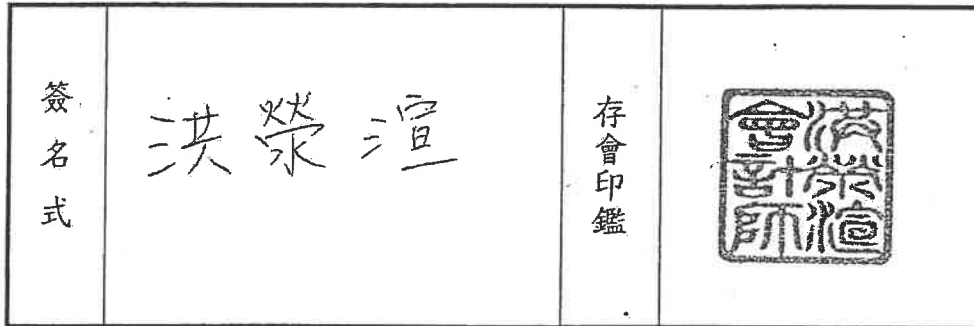 簽名式
洪滎渲
存會印鑑
洪滎渲
會計師